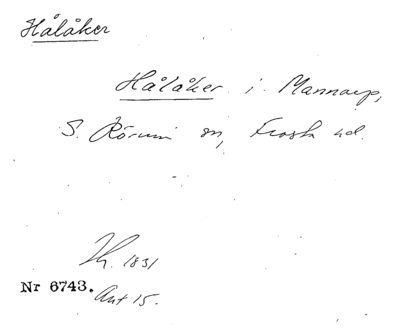 Hålåker
Hålåker i Mannarp,
S. Rörum sn, Frosta hd.
1831
Nr 6743. Ant 15.